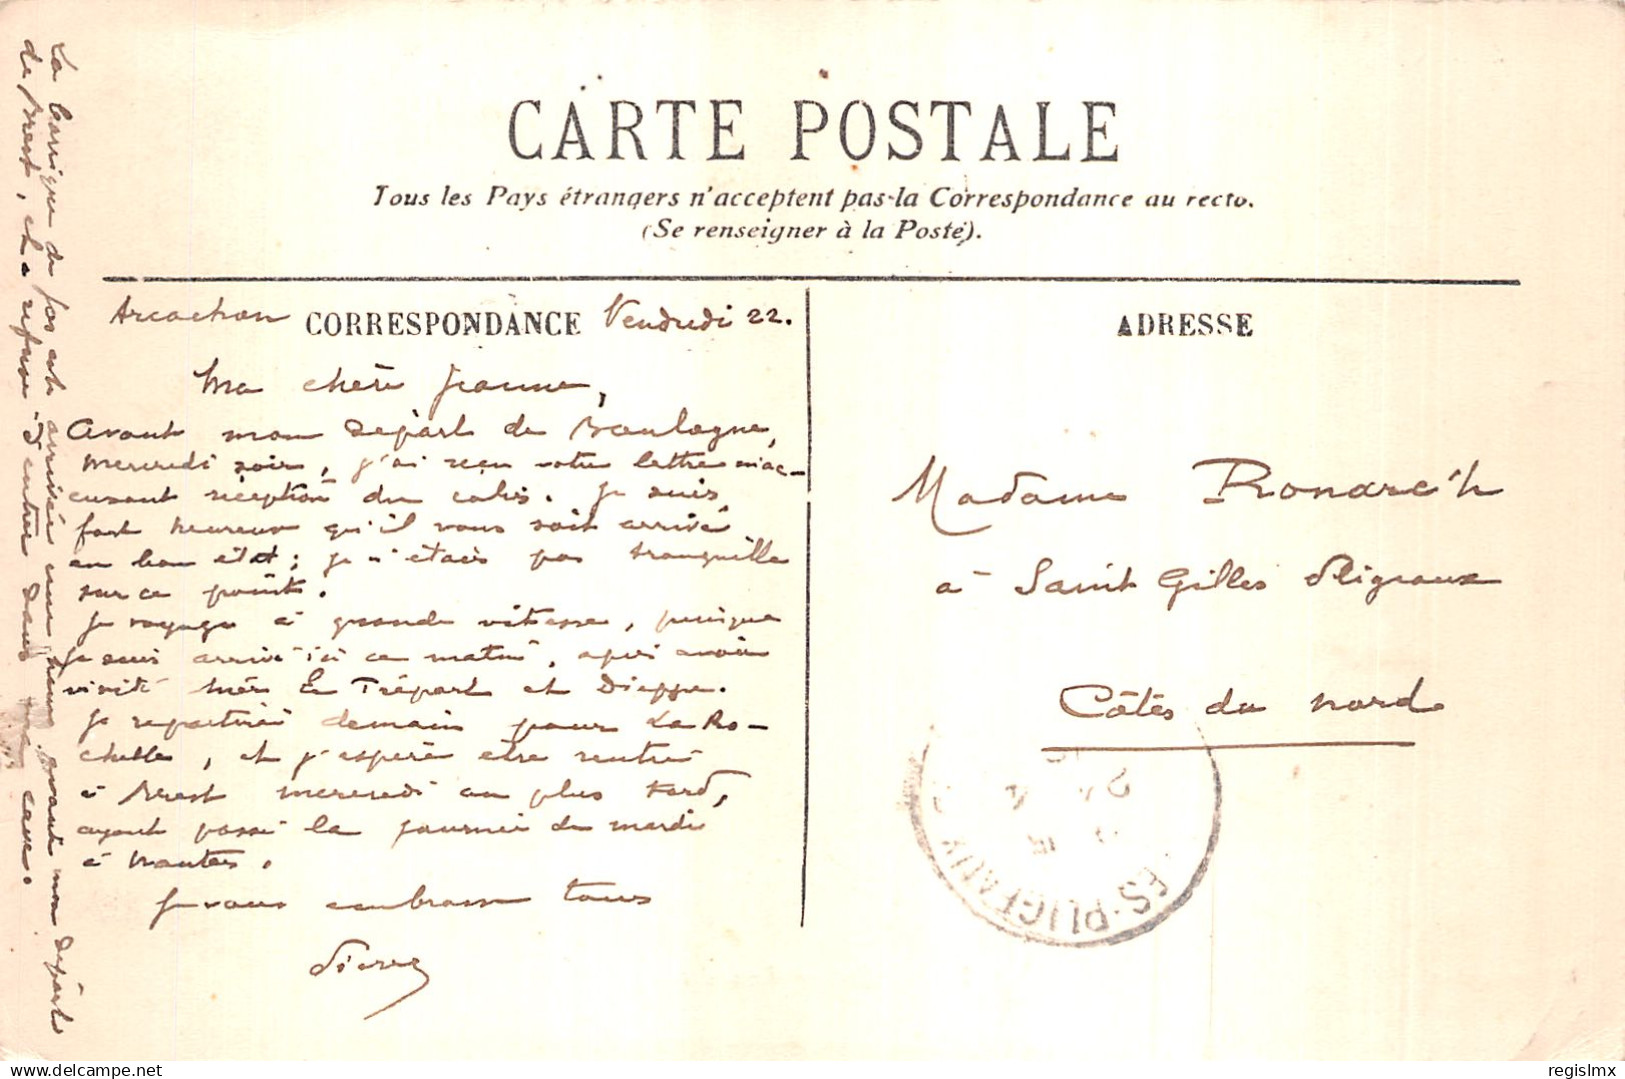 CARTE POSTALE
Tous les Pays étrangers n'acceptent pas la Correspondance au recto.
(Se renseigner à la Poste).
CORRESPONDANCE
ADRESSE
Arcachon Vendredi 22.
Ma chère Jeanne,
Avant mon départ de Boulogne,
mercredi soir, j'ai reçu votre lettre m'ac-
cusant réception du colis. Je suis
fort heureux qu'il vous soit arrivé
en bon état; je n'étais pas tranquille
sur ce point.
Je voyage à grande vitesse, puisque
je suis arrivé ici ce matin, après avoir
visité hier Le Tréport et Dieppe.
Je repartirai demain pour La Ro-
chelle, et j'espère être rentré
à Brest mercredi au plus tard,
ayant passé la journée de mardi
à Nantes.
Je vous embrasse tous
Pierre
La barrique de est arrivée une heure avant mon départ
de Brest, et a refusé d'entrer dans ma cave.
Madame Ronarc'h
à Saint Gilles Pligeaux
Côtes du Nord
ES-PLIGEAUX